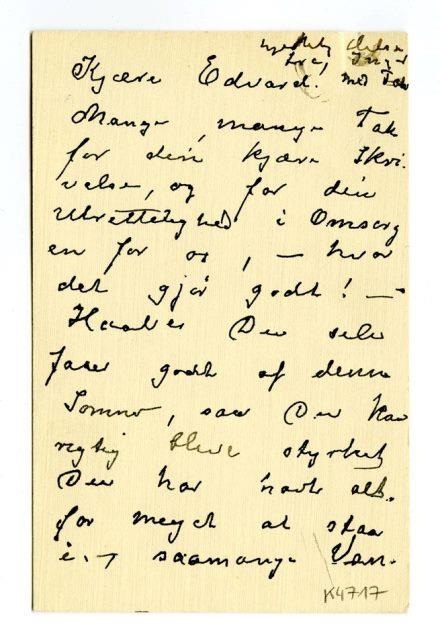 hjertelig Hilsen
fra Inger
Kjære Edvard. med Tak
Mange, mange Tak
for din kjære Skri-
velse, og for din
Utrættelighed i Omsorg
en for os, — hvor
det gjør godt! —
Haaber Du selv
faar godt af denne
Sommer, saa Du kan
rigtig blive styrket
Du har havt alt-
for meget at staa
i, — saamange Van-
K4717